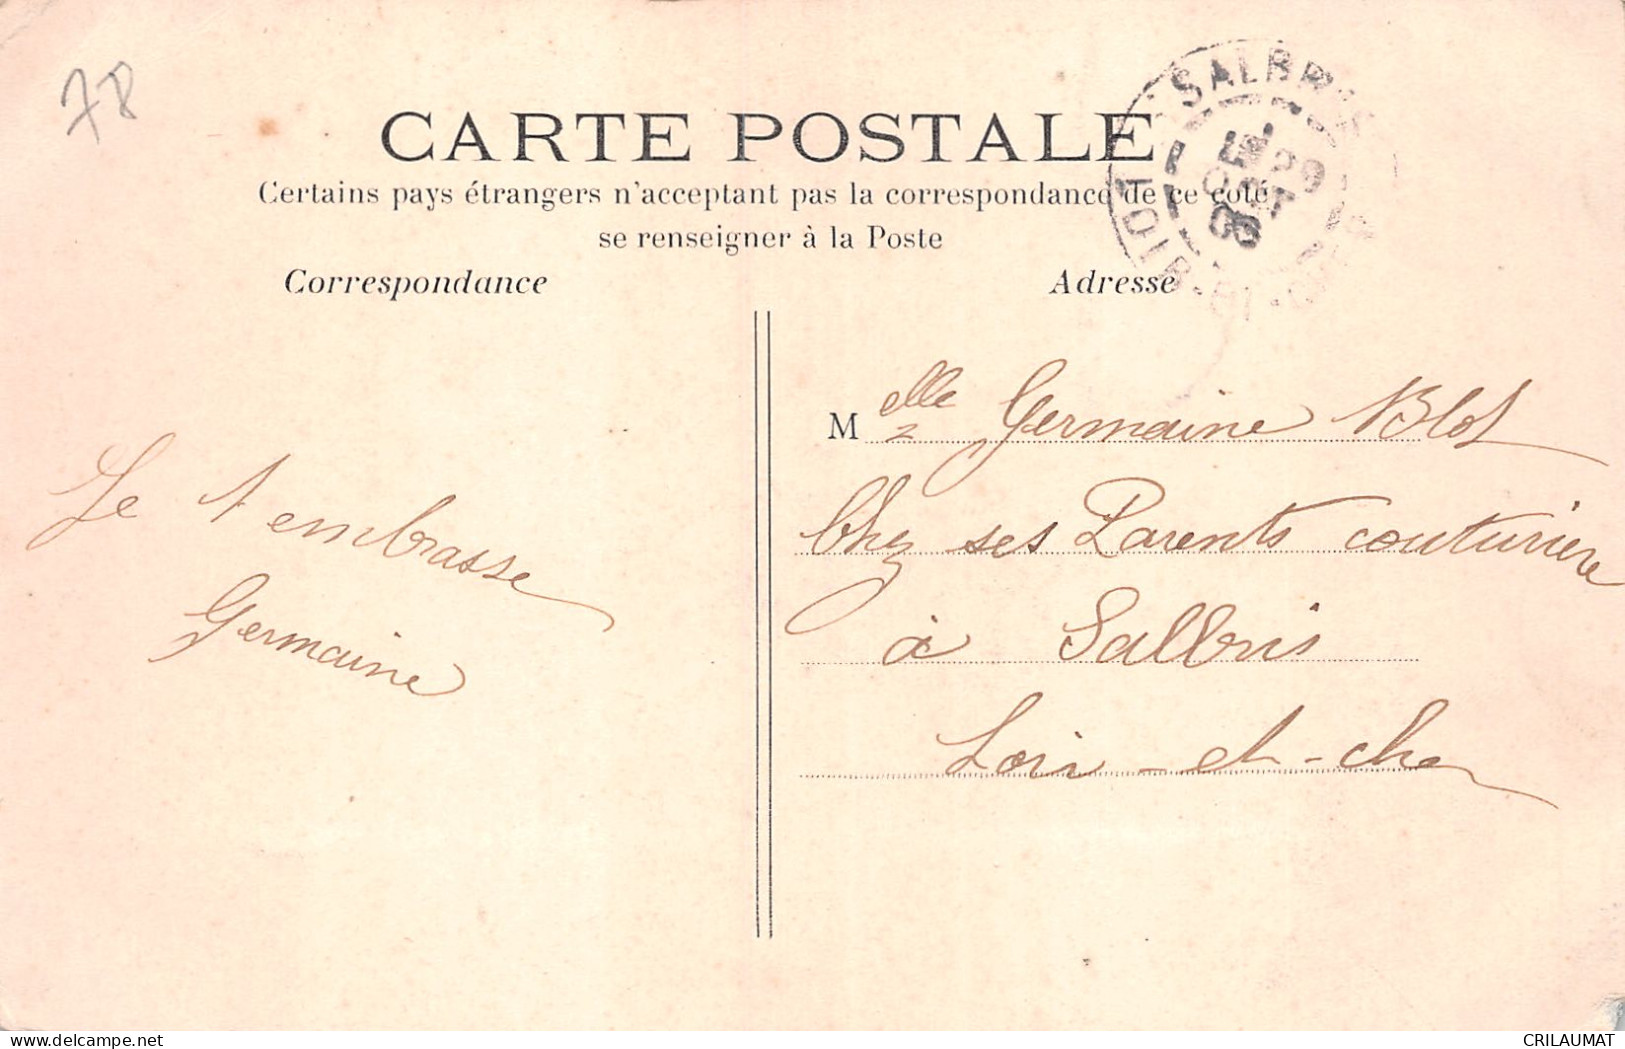 78
SALBRIS
CARTE POSTALE
Certains pays étrangers n'acceptant pas la correspondance de ce coté
se renseigner à la Poste
Correspondance
Adresse
M elle Germaine Blot
Chez ses Parents couturière
à Salbris
Loir-et-cher
Je t embrasse
Germaine
delcampe.net
CRILAUMAT